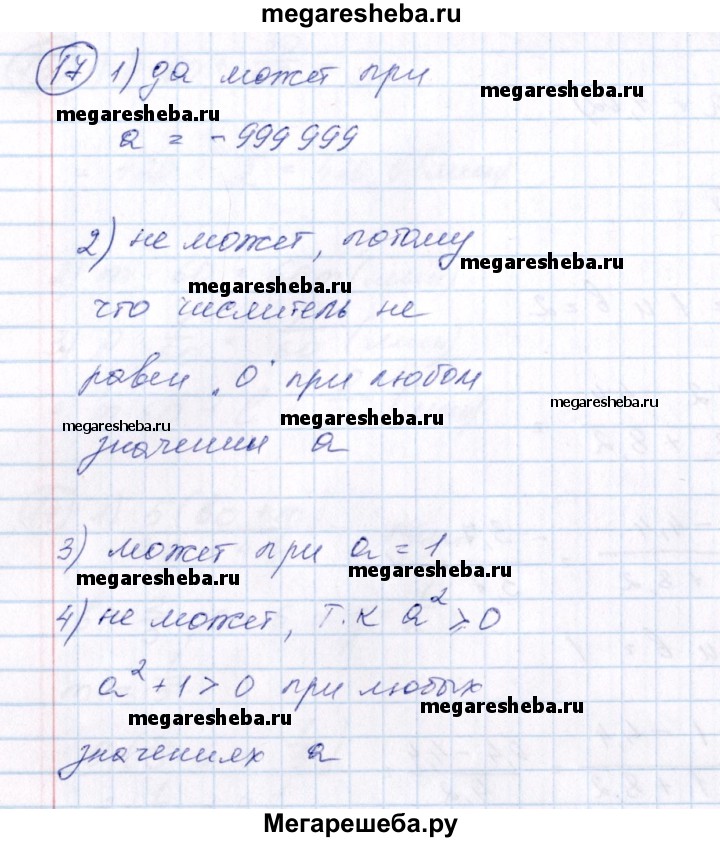 megaresheba.ru
17 1) да может при
megaresheba.ru
megaresheba.ru
a = - 999 999
2) не может, потому
megaresheba.ru
megaresheba.ru
что числитель не
равен „0" при любом
megaresheba.ru
megaresheba.ru
megaresheba.ru
значении a
3) может при a = 1
megaresheba.ru
megaresheba.ru
4) не может, т.к a² ≥ 0
a² + 1 > 0 при любых
megaresheba.ru
megaresheba.ru
значениях a
Мегарешеба.ру